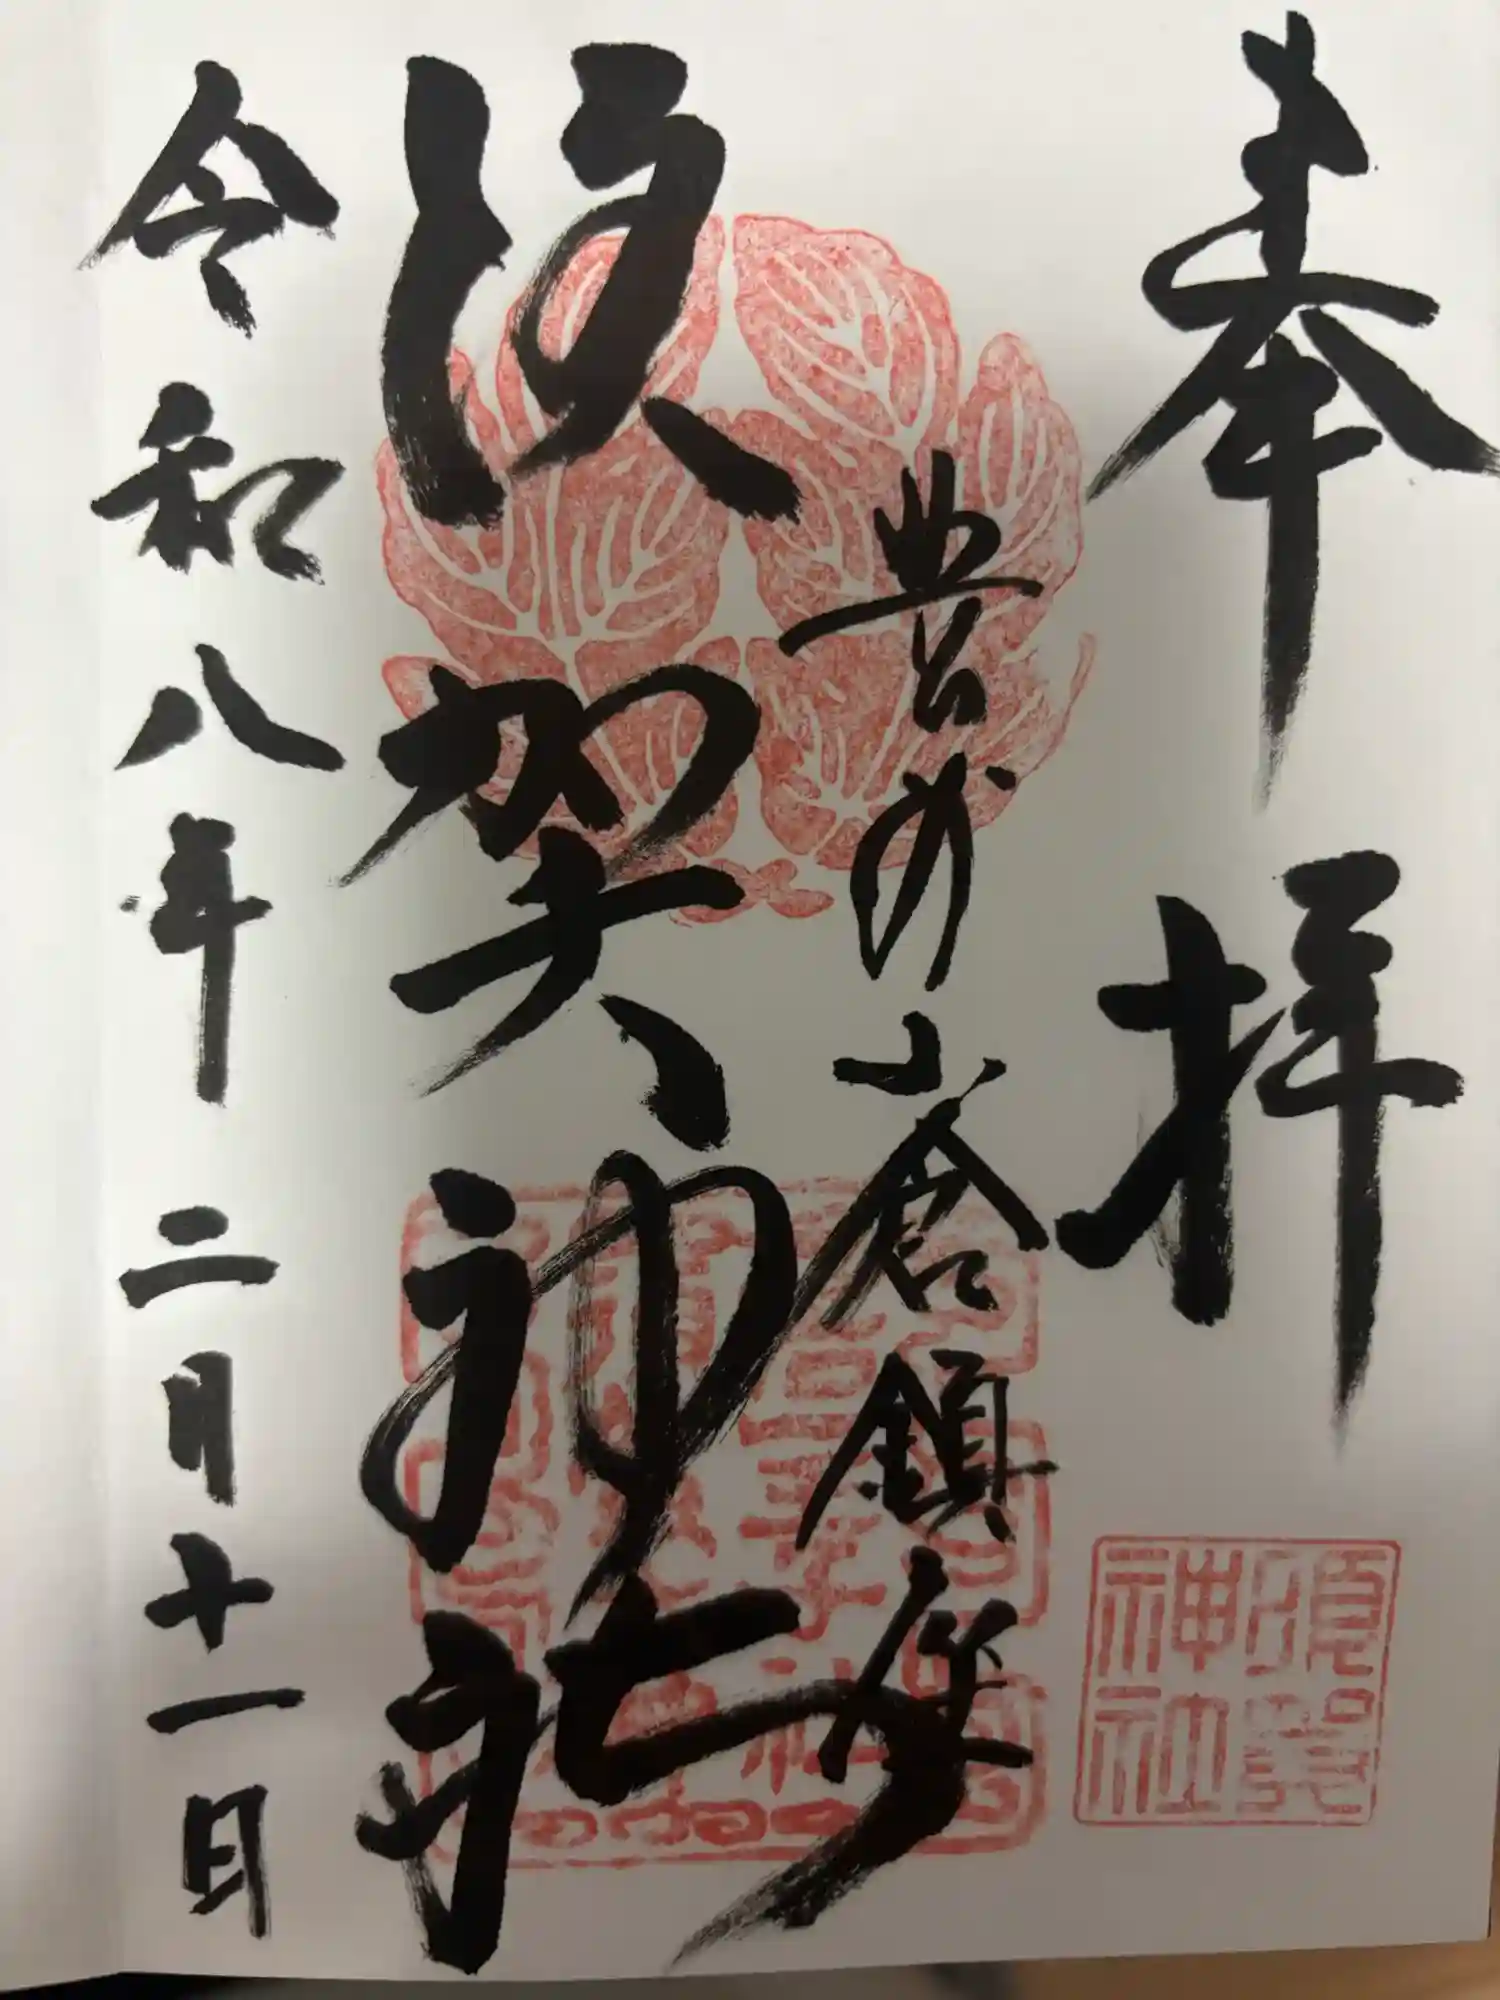 奉拝
豊の小倉鎮座
須賀神社
令和八年二月十一日
須賀
神社